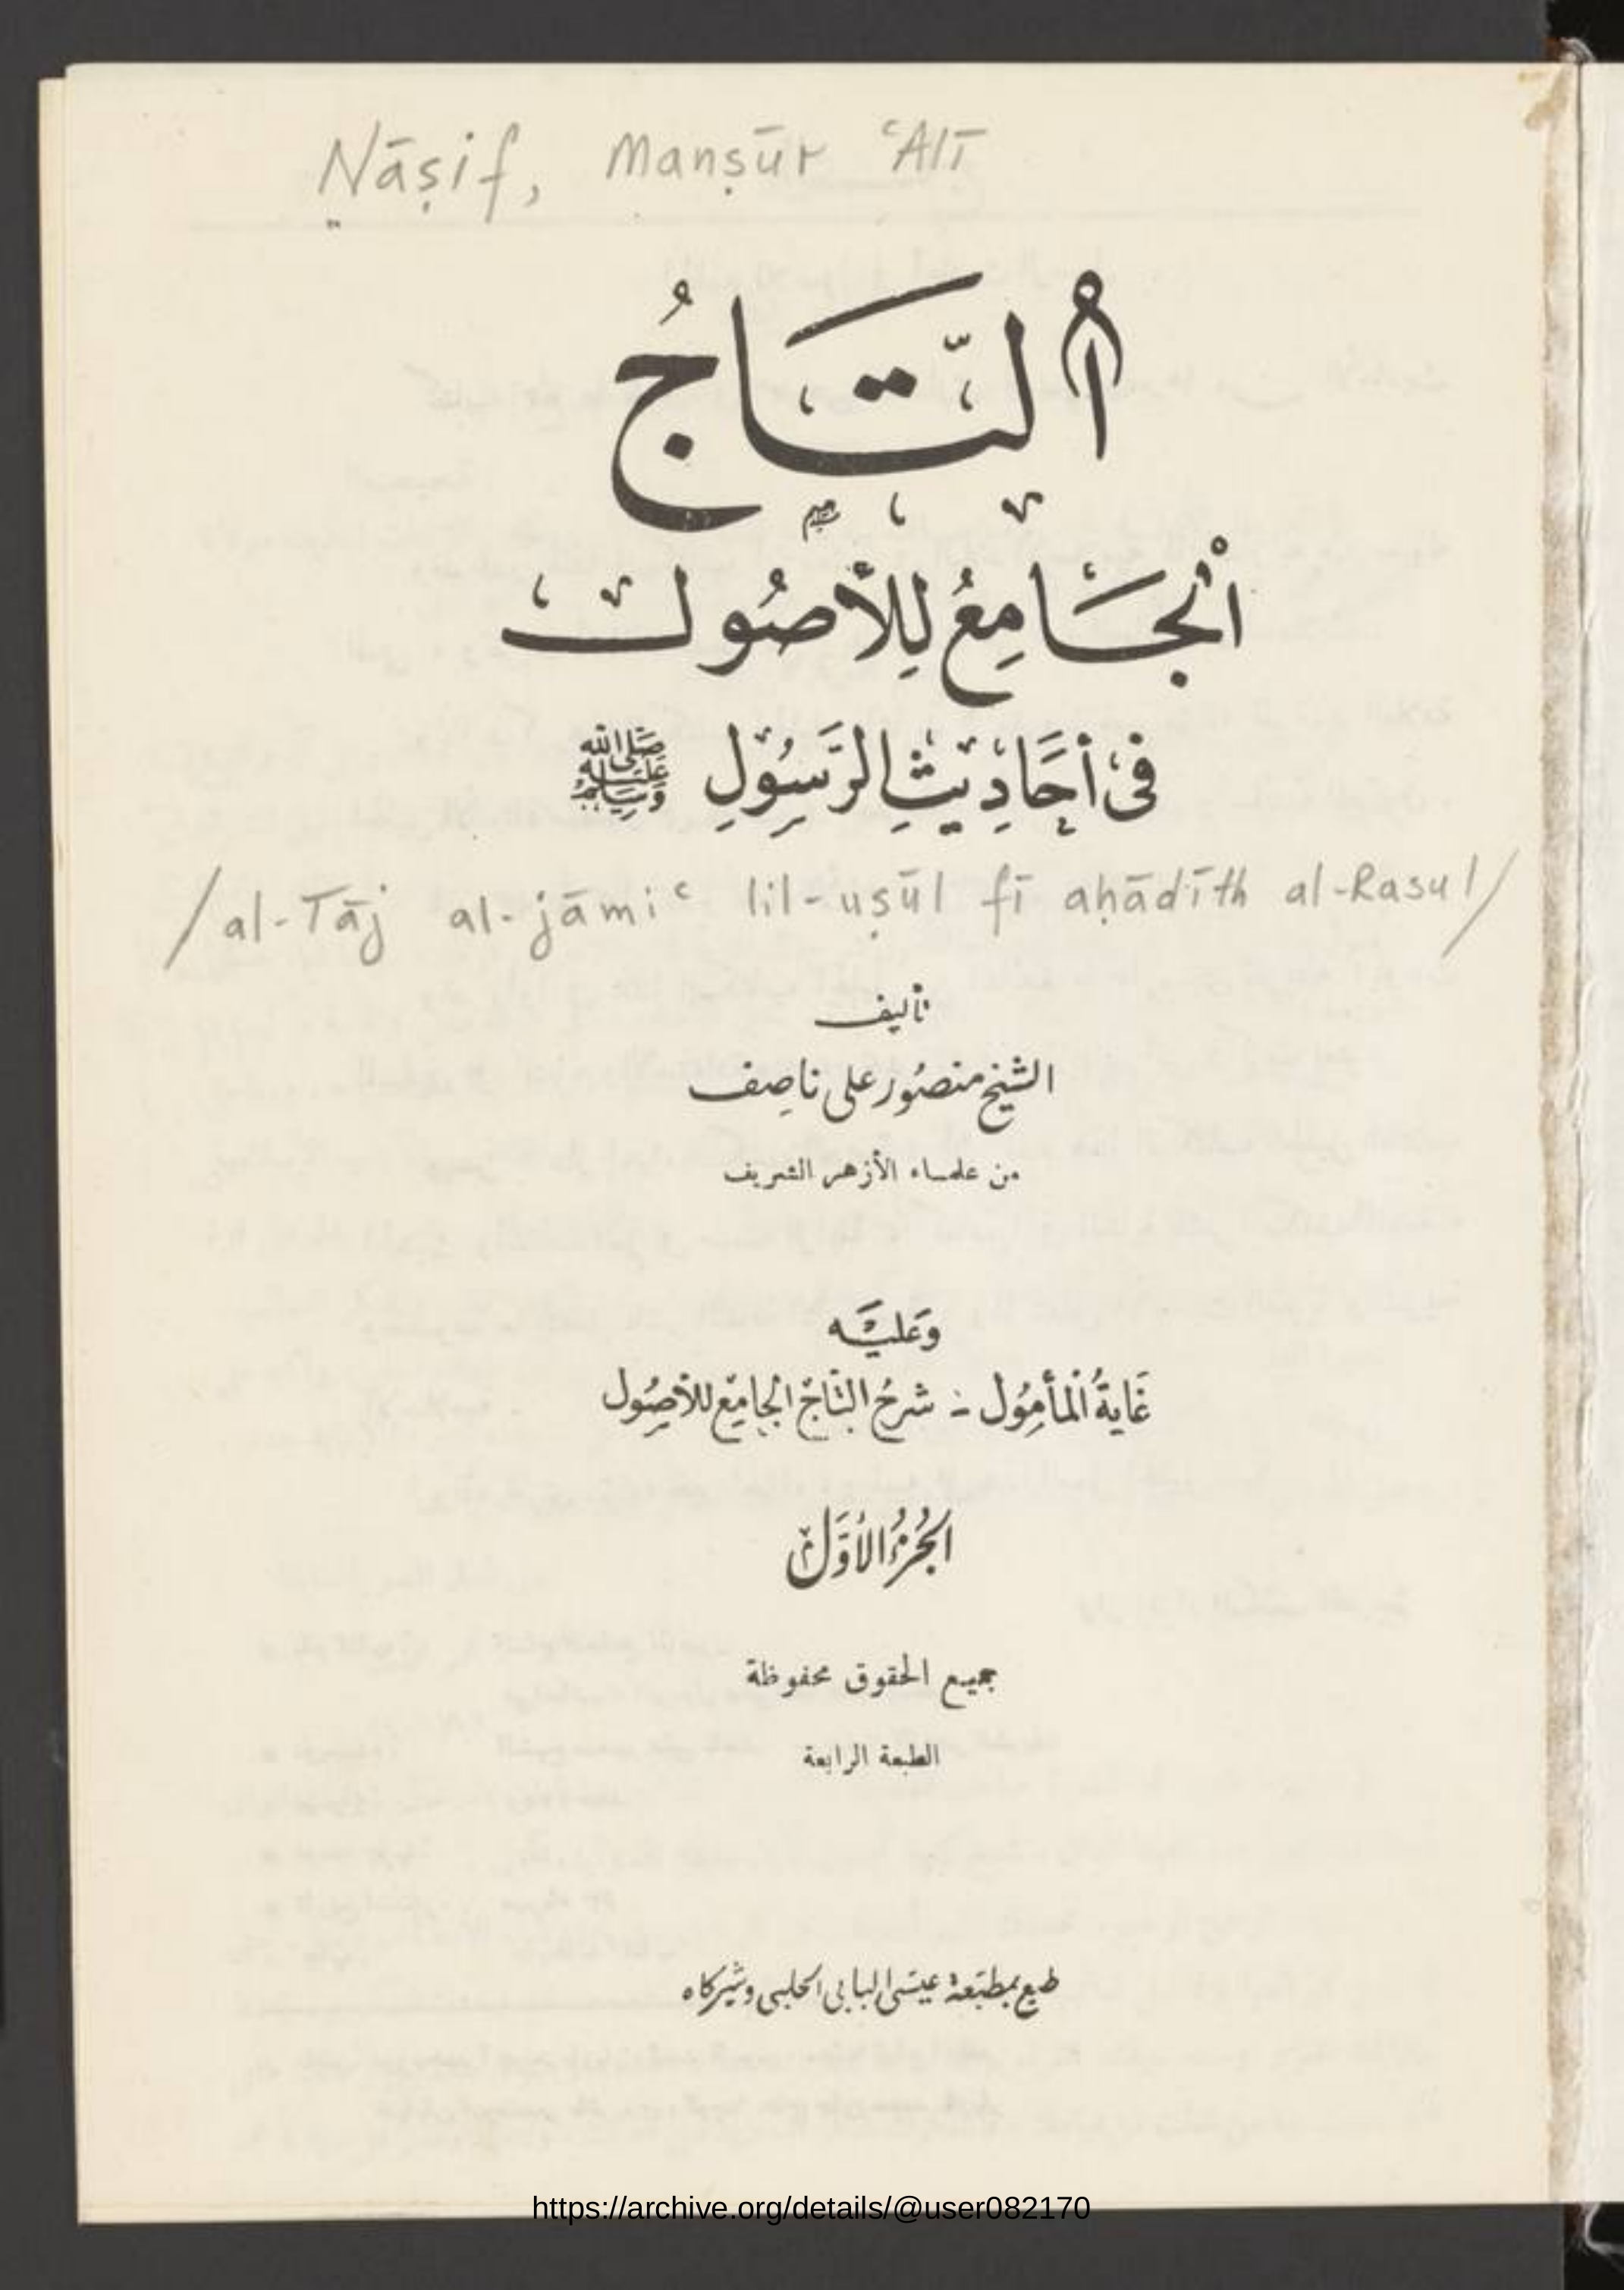 Nāṣif, Manṣūr ʿAlī
التَّاجُ
الْجَامِعُ لِلْأُصُول
فى أَحَادِيثِ الرَّسُولِ ﷺ
/al-Tāj al-jāmiʿ lil-uṣūl fī aḥādīth al-Rasul/
تأليف
الشيخ منصُور على ناصِف
من علماء الأزهر الشريف
وَعَليَه
غَايَةُ الْمَأمُول - شرحُ التَّاج الجامِع للأصُول
الجُزءُ الأوَّل
جميع الحقوق محفوظة
الطبعة الرابعة
طبع بمطبَعة عيسَى البابى الحلبى وشركاه
https://archive.org/details/@user082170